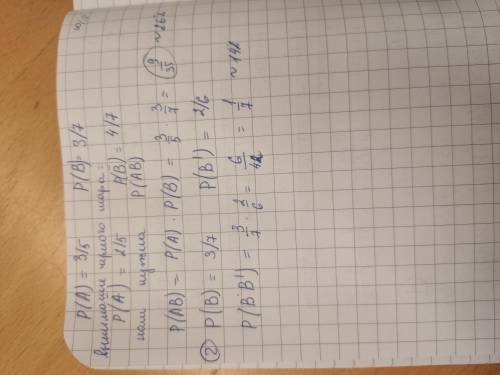 P(A) = 3/5 P(B) = 3/7
вынимание черного шара:
P(Ā) = 2/5 P(B̄) = 4/7
нам нужна P(AB)
P(AB) = P(A) · P(B) = 3/5 · 3/7 = 9/35 ~ 26%
② P(B) = 3/7 P(B') = 2/6
P(B·B') = 3/7 · 2/6 = 6/42 = 1/7 ~ 14%